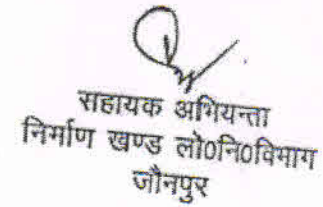 सहायक अभियन्ता
निर्माण खण्ड लो0नि0विभाग
जौनपुर